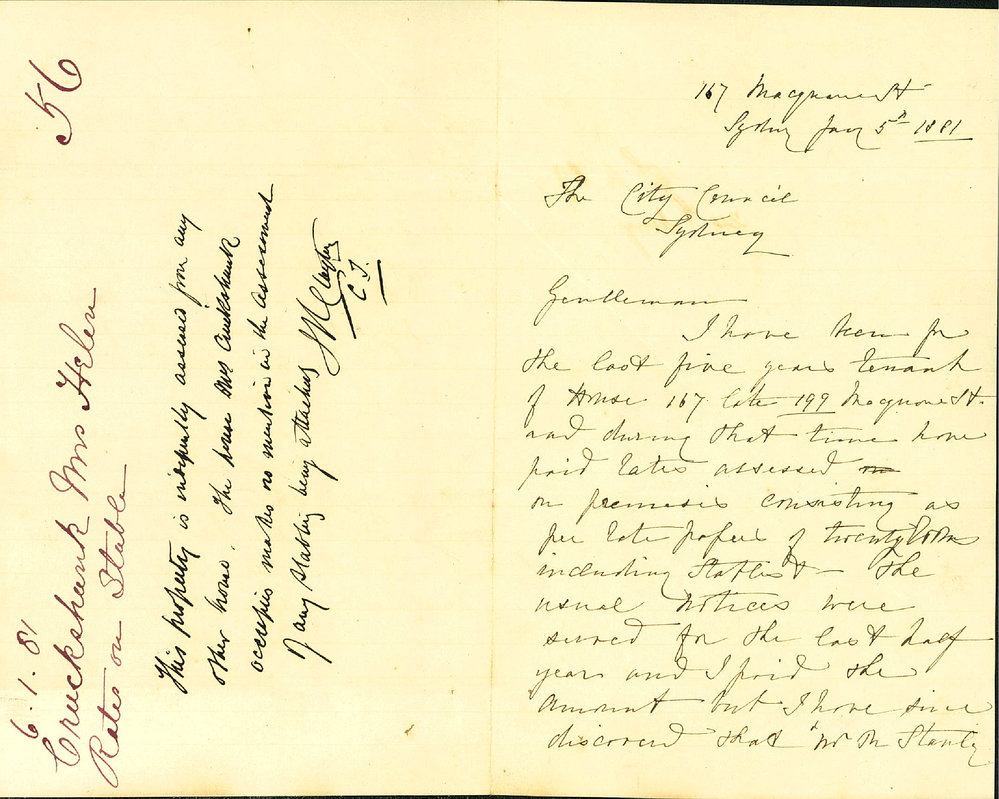 56
6.1.81
Cruckshank Mrs Helen
Rates on Stable
This property is independly assessed from any
other house. The house Mrs Cruckshank
occupies makes no mention in the assessment
of any stabling being attached
C.T.
167 Macquarie St
Sydney Jany 5th 1881
The City Council
Sydney
Gentleman
I have been for
the last five years tenant
of House 167 late 199 Macquarie St.
and during that time have
paid rates assessed
on premises consisting as
per rate papers of twenty rooms
including Stables &c The
usual notices were
served for the last half
year and I paid the
amount but I have since
discovered that Stanly